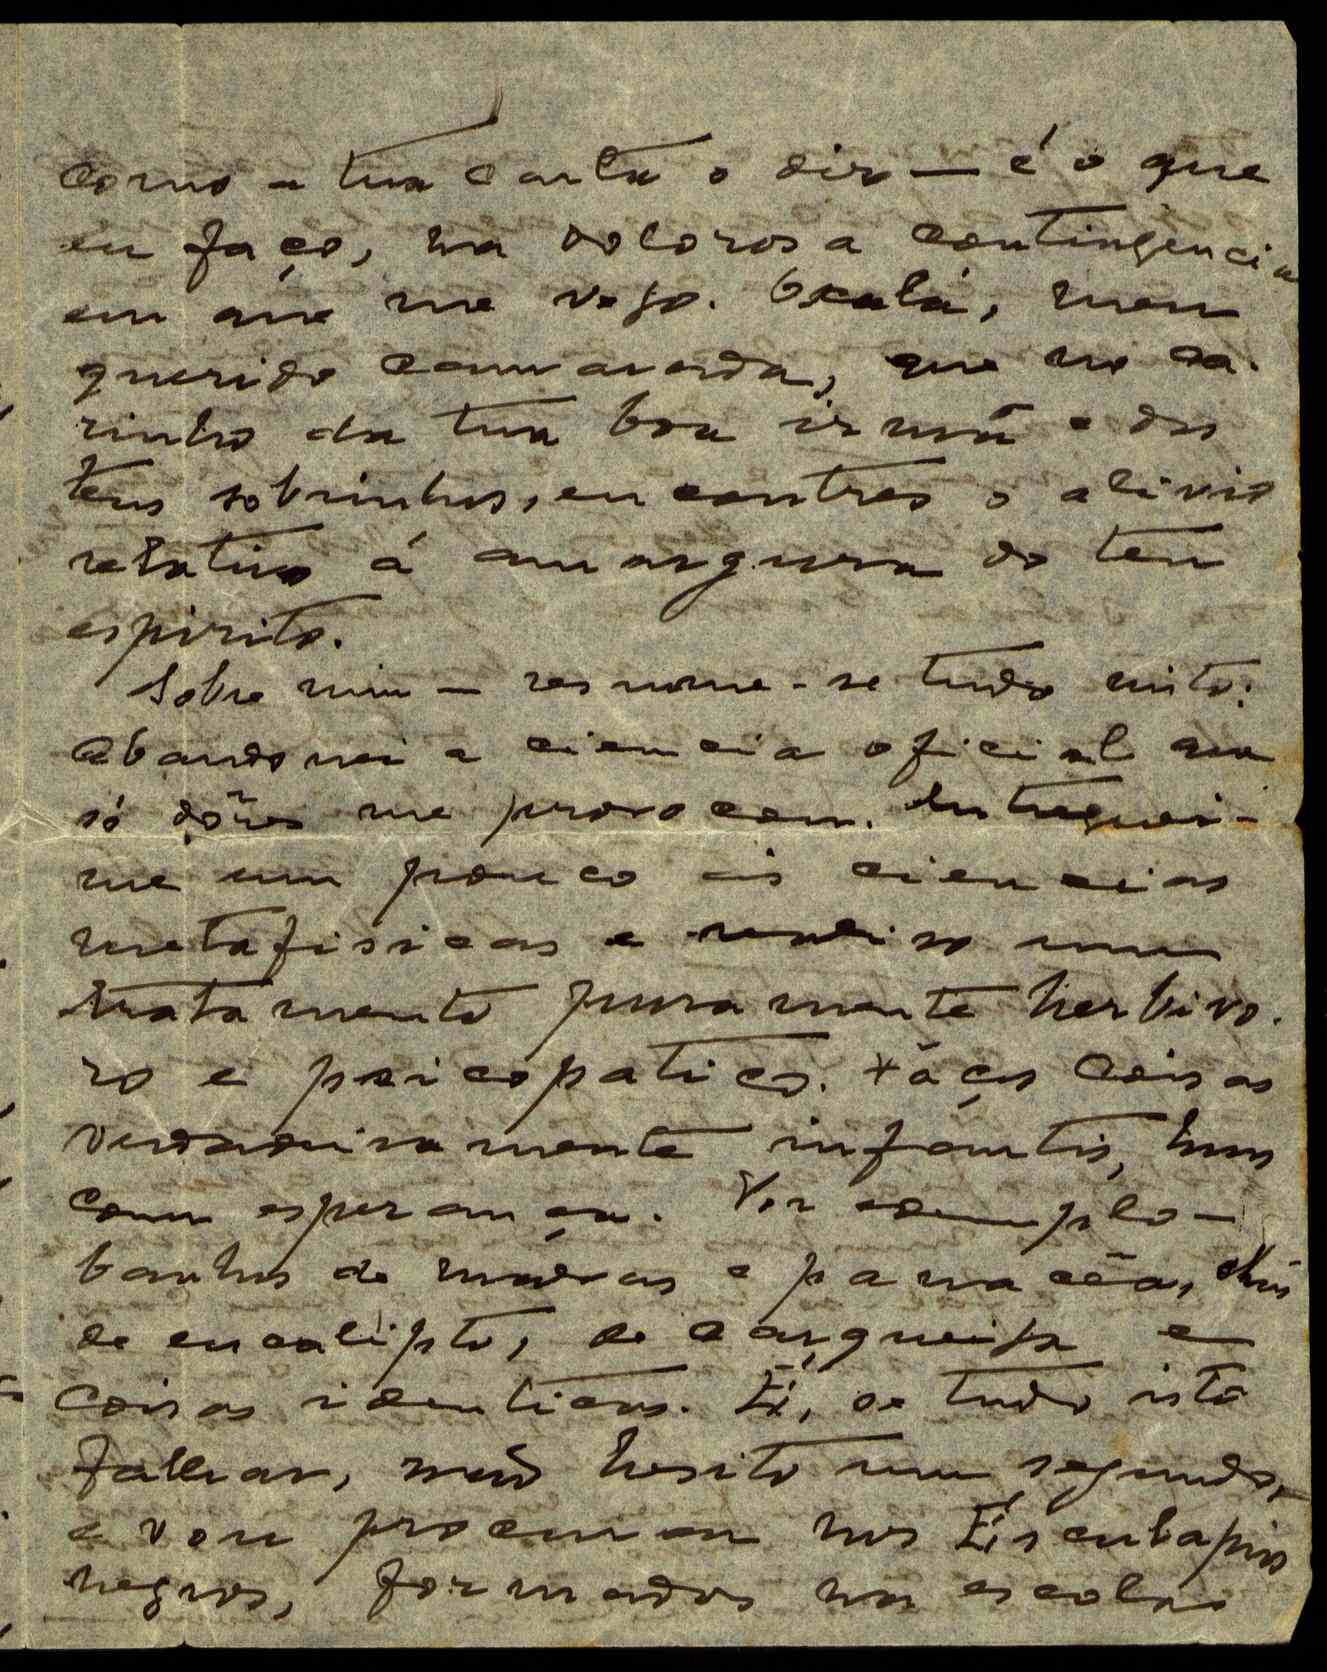 como a tua carta o diz — é o que
eu faço, na dolorosa contingencia
em que me vejo. Oxalá, meu
querido cammarada, que no ca-
rinho da tua boa irmã e dos
teus sobrinhos, encontres o alivio
relativo á amargura do teu
espirito.
Sobre mim — resume-se tudo nisto:
Abandonei a ciencia oficial que
só dôres me provocou. Entreguei-
me um pouco ás ciencias
metafisicas e a um
tratamento puramente herbivo-
ro e psicopatico. Faço coisas
verdadeiramente infantis, mas
com esperança. Por exemplo —
banhos de malvas e panacêa, chás
de eucalipto, de carqueija e
coisas identicas. E, se tudo isto
falhar, não hesito um segundo,
e vou procurar nos Esculapios
negros, formados na escola